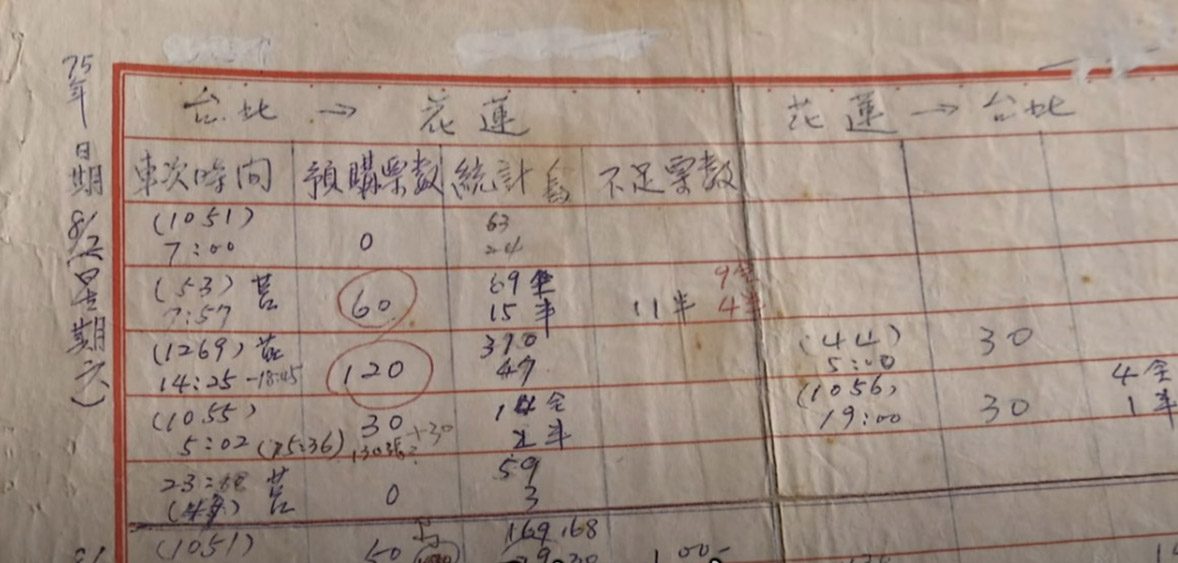 75年
日期
8/2(星期六)
台北 → 花蓮
花蓮 → 台北
車次時间 預購票数 統計 不足票数
(1051)
7:00 0 63
24
(53) 莒
7:57 60 69全
15半 11半 9全
4半
(1269) 莒
14:25-18:45 120 370
47
(44)
5:00 30
(1056)
19:00 30 4全
1半
(1055)
5:02 (15:36) 30 +30
半
23: 莒
0 59
3
(1051) 169,168
50